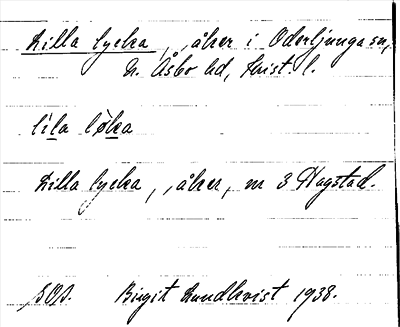 Lilla lycka, åker i Oderljunga sn,
N. Åsbo hd, Krist. l.
lìla løka
Lilla lycka, åker, nr 3 Hagstad.
Birgit Lundkvist 1938.